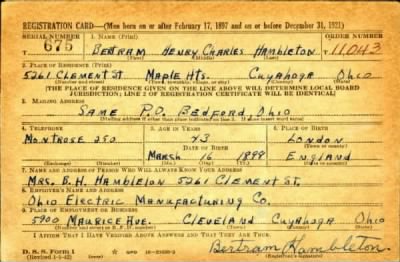 REGISTRATION CARD—(Men born on or after February 17, 1897 and on or before December 31, 1921)
SERIAL NUMBER 1. NAME (Print) ORDER NUMBER
675 BERTRAM HENRY CHARLES HAMBLETON 11,043
(First) (Middle) (Last)
2. PLACE OF RESIDENCE (Print)
5261 CLEMENT ST MAPLE HTS. CUYAHOGA OHIO
(Number and street) (Town, township, village, or city) (County) (State)
[THE PLACE OF RESIDENCE GIVEN ON THE LINE ABOVE WILL DETERMINE LOCAL BOARD
JURISDICTION; LINE 2 OF REGISTRATION CERTIFICATE WILL BE IDENTICAL]
3. MAILING ADDRESS
SAME P.O. BEDFORD, OHIO
[Mailing address if other than place indicated on line 2. If same insert word same]
4. TELEPHONE 5. AGE IN YEARS 6. PLACE OF BIRTH
MONTROSE 250 43 LONDON
DATE OF BIRTH (Town or county)
MARCH 16 1899 ENGLAND
(Exchange) (Number) (Mo.) (Day) (Yr.) (State or country)
7. NAME AND ADDRESS OF PERSON WHO WILL ALWAYS KNOW YOUR ADDRESS
MRS. B. H. HAMBLETON 5261 CLEMENT ST.
8. EMPLOYER'S NAME AND ADDRESS
OHIO ELECTRIC MANUFACTURING CO.
9. PLACE OF EMPLOYMENT OR BUSINESS
5900 MAURICE AVE. CLEVELAND CUYAHOGA OHIO
(Number and street or R. F. D. number) (Town) (County) (State)
I AFFIRM THAT I HAVE VERIFIED ABOVE ANSWERS AND THAT THEY ARE TRUE.
D. S. S. Form 1
(Revised 1-5-42) GPO
Bertram Hambleton